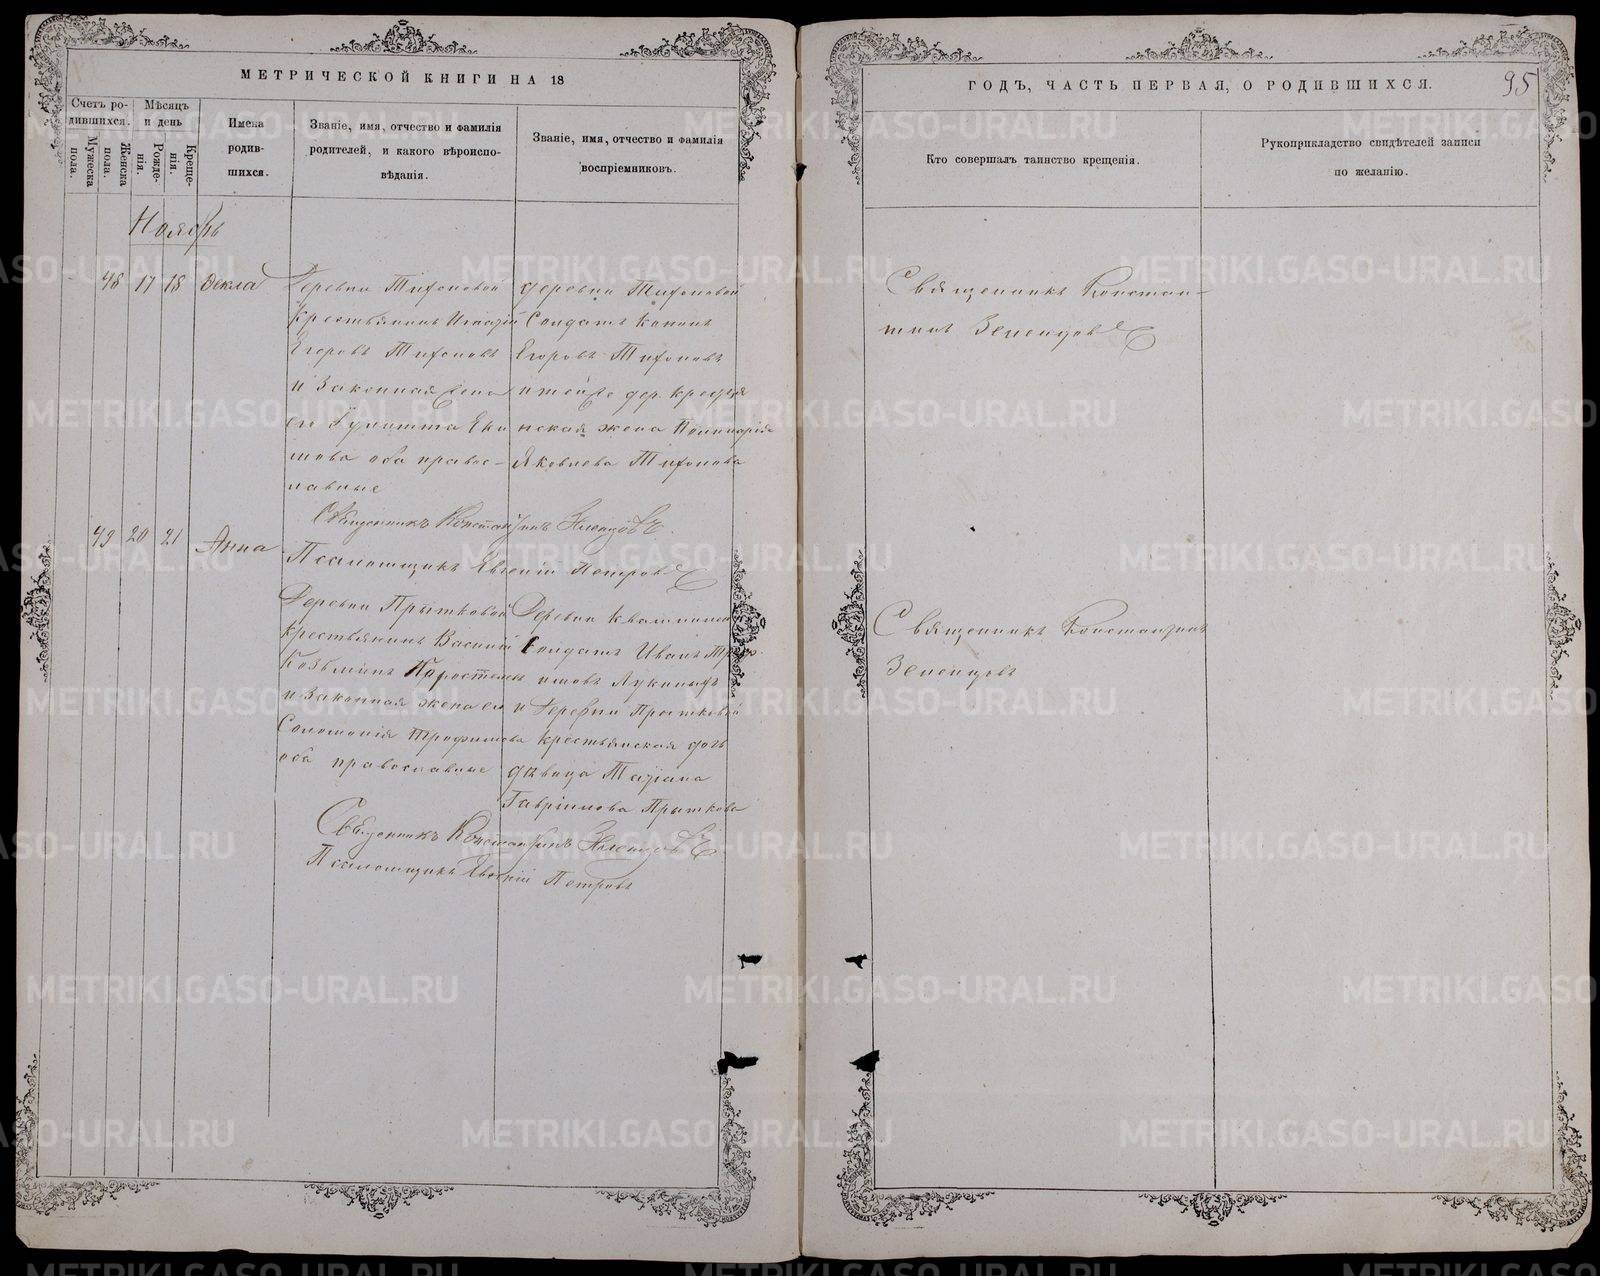 МЕТРИЧЕСКОЙ КНИГИ НА 18
Счетъ родившихся.
Мужеска пола.
Женска пола.
Мѣсяцъ и день
Рожденія.
Крещенія.
Имена родившихся.
Званіе, имя, отчество и фамилія
родителей, и какого вѣроиспо-
вѣданія.
Званіе, имя, отчество и фамилія
воспріемниковъ.
Ноябрь
48 17 18 Фекла
Деревни Тихоновой
крестьянинъ Игнатій
Егоровъ Тихоновъ
и законная жена
его Улитта Еки
мова оба правос-
лавные
деревни Тихоновой
Солдатъ Кононъ
Егоровъ Тихоновъ
и той же дер. крестья
нская жена
Яковлева Тихонова
Священникъ Константинъ Зеленцовъ
Псаломщикъ Евгеній Петровъ
49 20 21 Анна
Деревни Прытковой
крестьянинъ Василій
Козьминъ Коростелевъ
и законная жена его
Соломонія Трофимова
оба православные
Деревни Квашниной
Солдатъ Иванъ
Лукиныхъ
и Деревни Прытковой
крестьянская дочь
дѣвица Татіана
Гавріилова Прыткова
Священникъ Константинъ Зеленцовъ
Псаломщикъ Евгеній Петровъ
ГОДЪ, ЧАСТЬ ПЕРВАЯ, О РОДИВШИХСЯ.
95
Кто совершалъ таинство крещенія.
Рукоприкладство свидѣтелей записи
по желанію.
Священникъ Констан-
тинъ Зеленцовъ
Священникъ Константинъ
Зеленцовъ
METRIKI.GASO-URAL.RU